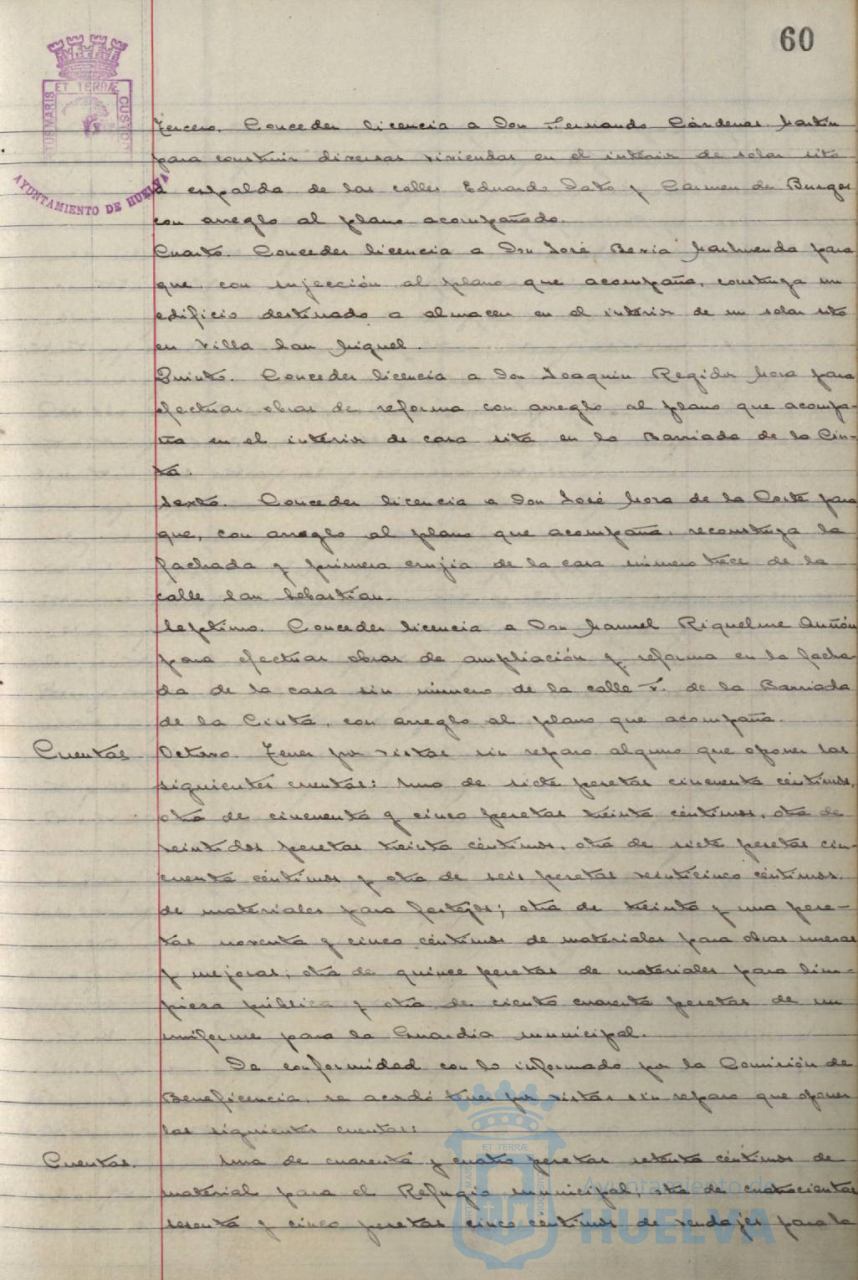 60
ET TERRÆ
CUSTODI
AYUNTAMIENTO DE HUELVA
Tercero. Conceder licencia a Don Fernando Cárdenas Martín
para construir diversas viviendas en el interior de solar sito
a espalda de las calles Eduardo Dato y Carmen de Burgos
con arreglo al plano acompañado.
Cuarto. Conceder licencia a Don José para
que, con sujección al plano que acompaña, construya un
edificio destinado a almacen en el interior de un solar sito
en Villa San Miguel.
Quinto. Conceder licencia a Don Joaquin Regidor Mora para
efectuar obras de reforma con arreglo al plano que acompa-
ña en el interior de casa sita en la Barriada de la Cin-
ta.
Sexto. Conceder licencia a Don José Mora de la Corte para
que, con arreglo al plano que acompaña, reconstruya la
fachada y primera crujia de la casa número trece de la
calle San Sebastian.
Septimo. Conceder licencia a Don Manuel Riquelme Auñón
para efectuar obras de ampliación y reforma en la facha-
da de la casa sin número de la calle F. de la Barriada
de la Cinta, con arreglo al plano que acompaña.
Cuentas Octavo. Tener por vistas sin reparo alguno que oponer las
siguientes cuentas: una de siete pesetas cincuenta céntimos,
otra de cincuenta y cinco pesetas treinta céntimos, otra de
veintidos pesetas treinta céntimos, otra de siete pesetas cin-
cuenta céntimos y otra de seis pesetas veinticinco céntimos,
de materiales para festejos; otra de treinta y una pese-
tas noventa y cinco céntimos de materiales para obras nuevas
y mejoras; otra de quince pesetas de materiales para lim-
pieza pública y otra de ciento cuarenta pesetas de un
uniforme para la Guardia municipal.
De conformidad con lo informado por la Comisión de
Beneficencia, se acordó tener por vistas sin reparo que oponer
las siguientes cuentas:
Cuentas. Una de cuarenta y cuatro pesetas setenta céntimos de
material para el Refugio municipal; otra de cuatrocientas
sesenta y cinco pesetas cinco céntimos de vendajes para la
ET TERRÆ
Ayuntamiento de
HUELVA